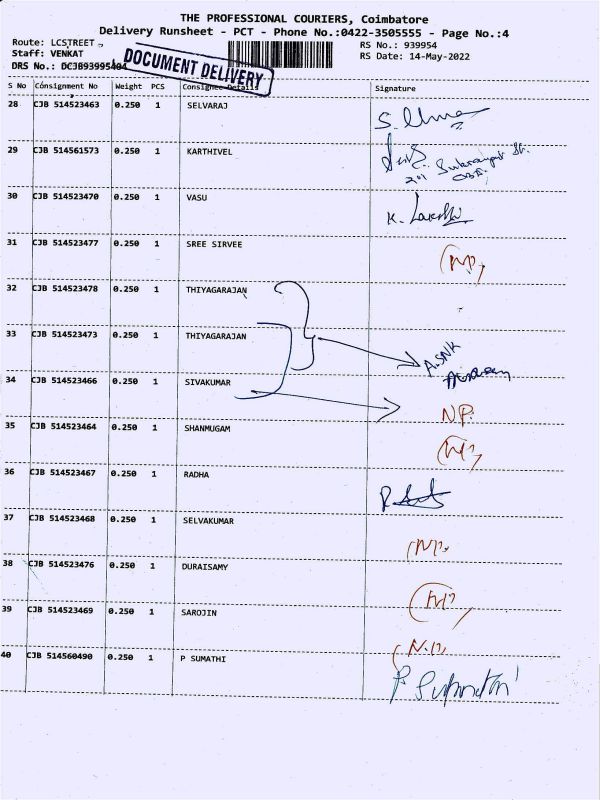 THE PROFESSIONAL COURIERS, Coimbatore
Delivery Runsheet - PCT - Phone No.:0422-3505555 - Page No.:4
Route: LCSTREET
RS No.: 939954
Staff: VENKAT
RS Date: 14-May-2022
DRS No.: DCJB93995404
DOCUMENT DELIVERY
S No Consignment No Weight PCS Consignee Details Signature
28 CJB 514523463 0.250 1 SELVARAJ
29 CJB 514561573 0.250 1 KARTHIVEL
30 CJB 514523470 0.250 1 VASU
31 CJB 514523477 0.250 1 SREE SIRVEE
32 CJB 514523478 0.250 1 THIYAGARAJAN
33 CJB 514523473 0.250 1 THIYAGARAJAN
34 CJB 514523466 0.250 1 SIVAKUMAR
NP.
35 CJB 514523464 0.250 1 SHANMUGAM
36 CJB 514523467 0.250 1 RADHA
37 CJB 514523468 0.250 1 SELVAKUMAR
38 CJB 514523476 0.250 1 DURAISAMY
39 CJB 514523469 0.250 1 SAROJIN
40 CJB 514560490 0.250 1 P SUMATHI
P Sumathi